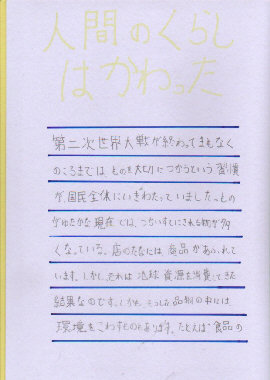 人間のくらし
はかわった
第二次世界大戦が終わってまもなく
のころまでは、ものを大切につかうという習慣
が、国民全体にいきわたっていましたもの
がゆたかな現在では、つかいすてにされる物が多
くなっている。店のたなには商品があふれて
います。しかし、それは地球資源を消費してきた
結果なのです。しかも、そうした品物の中には
環境をこわすものもあります。たとえば食品の